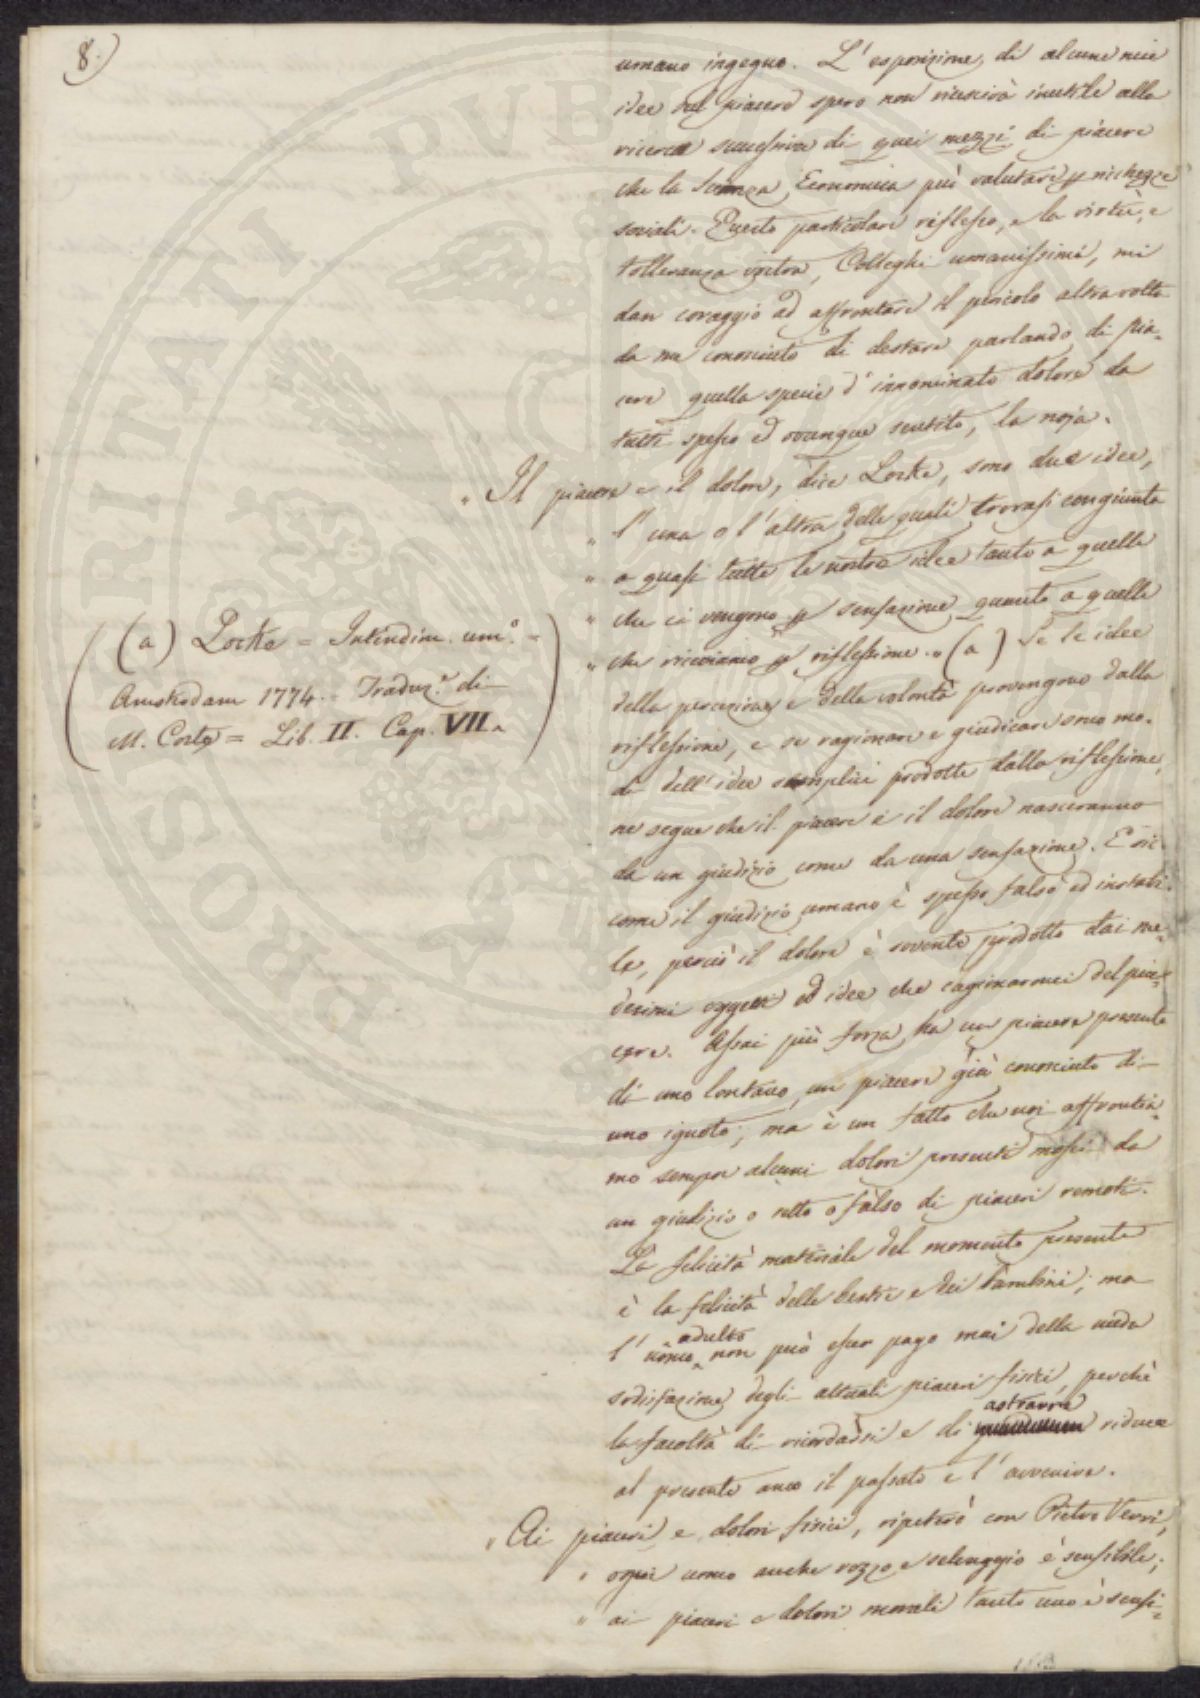 8.)
umano ingegno. L'esposizione di alcune mie
idee sul piacere spero non riuscirà inutile alla
ricerca successiva di quei mezzi di piacere
che la Scienza Economica può valutare p ricchezze
sociali. Questo particolare riflesso, e la virtù, e
tolleranza vostra, Colleghi umanissimi, mi
dan coraggio ad affrontare il pericolo altra volta
da me conosciuto di destare parlando di pia=
cere quella specie d'innominato dolore da
tutti spesso ed ovunque sentito, la noja.
" Il piacere e il dolore, dice Locke, sono due idee,
" l'una o l'altra delle quali trovasi congiunta
" a quasi tutte le nostre idee tanto a quelle
" che ci vengono p sensazione quanto a quelle
" che riceviamo p riflessione." (a) Se le idee
della percezione e della volontà provengono dalla
riflessione, e se ragionare e giudicare sono mo-
di dell'idee semplici prodotte dalla riflessione,
ne segue che il piacere e il dolore nasceranno
da un giudizio come da una sensazione. E sic
come il giudizio umano è spesso falso ed instabi-
le, perciò il dolore è sovente prodotto dai me=
desimi oggetti ed idee che cagionarono del pia=
cere. Assai più forza ha un piacere presente
di uno lontano, un piacere già conosciuto di
uno ignoto; ma è un fatto che noi affrontia=
mo sempre alcuni dolori presenti mossi da
un giudizio o retto o falso di piaceri remoti.
La felicità materiale del momento presente
è la felicità delle bestie e dei bambini; ma
adulto
l'uomo non può esser pago mai della nuda
sodisfazione degli attuali piaceri fisici, perchè
astrarre
la facoltà di ricordarsi e di riduce
al presente anco il passato e l'avvenire.
" Ai piaceri e dolori fisici, ripeterò con Pietro Verri,
" ogni uomo anche rozzo e selvaggio è sensibile;
" ai piaceri e dolori morali tanto uno è sensi=
(a) Locke = Intendim. um.º =
Amsterdam 1774. = Traduz.e di
M. Coste = Lib. II. Cap. VII.